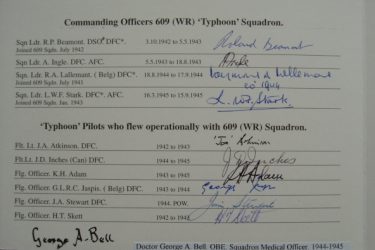 Commanding Officers 609 (WR) 'Typhoon' Squadron.
Sqn Ldr. R.P. Beamont. DSO* DFC*. 3.10.1942 to 5.5.1943 Roland Beamont
Joined 609 sqn. July 1942
Sqn Ldr. A. Ingle. DFC. AFC. 5.5.1943 to 18.8.1943
Sqn Ldr. R.A. Lallemant. ( Belg) DFC*. 18.8.1944 to 17.9.1944 Raymond A Lallemant
Joined 609 sqn.
Sqn Ldr. L.W.F. Stark. DFC*. AFC. 16.3.1945 to 15.9.1945 L.W.F. Stark
Joined 609 Sqn. Jan. 1943
'Typhoon' Pilots who flew operationally with 609 (WR) Squadron.
Flt. Lt. J.A. Atkinson. DFC. 1942 to 1943 Atkinson
Flt. Lt. J.D. Inches (Can) DFC. 1942 to 1944 J.D. Inches
Flg. Officer. K.H. Adam 1943 to 1946 Adam
Flg. Officer. G.L.R.C. Jaspis. ( Belg) DFC. 1943 to 1944 George
Flg. Officer. J.A. Stewart DFC 1944 POW. Jim Stewart
Flg. Officer. H.T. Skett 1944 to 1945 HT Skett
George A. Bell
Doctor George A. Bell. OBE. Squadron Medical Officer. 1944-1945